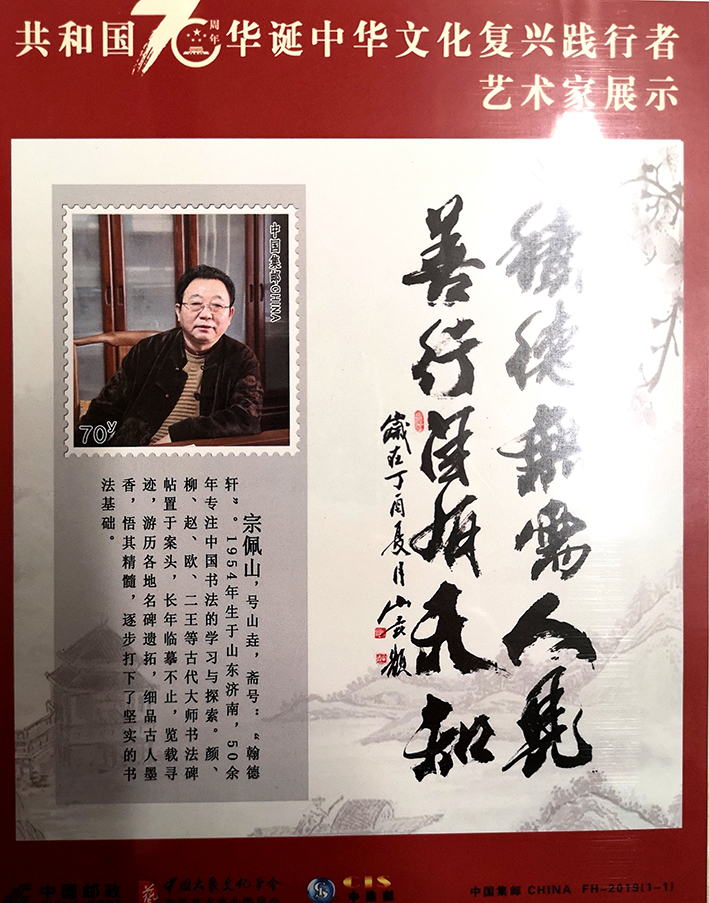 共和国70周年华诞中华文化复兴践行者
艺术家展示
積德無需人見
善行自有天知
歲在丁酉夏月山垚題
中国集邮CHINA
70y
宗佩山，号山垚，斋号：“翰德
轩”。1954年生于山东济南，50余
年专注中国书法的学习与探索。颜、
柳、赵、欧、二王等古代大师书法碑
帖置于案头，长年临摹不止，览载寻
迹，游历各地名碑遗拓，细品古人墨
香，悟其精髓，逐步打下了坚实的书
法基础。
中国邮政
中国大众文化学会
CIS
中国集邮 CHINA FH-2019(1-1)